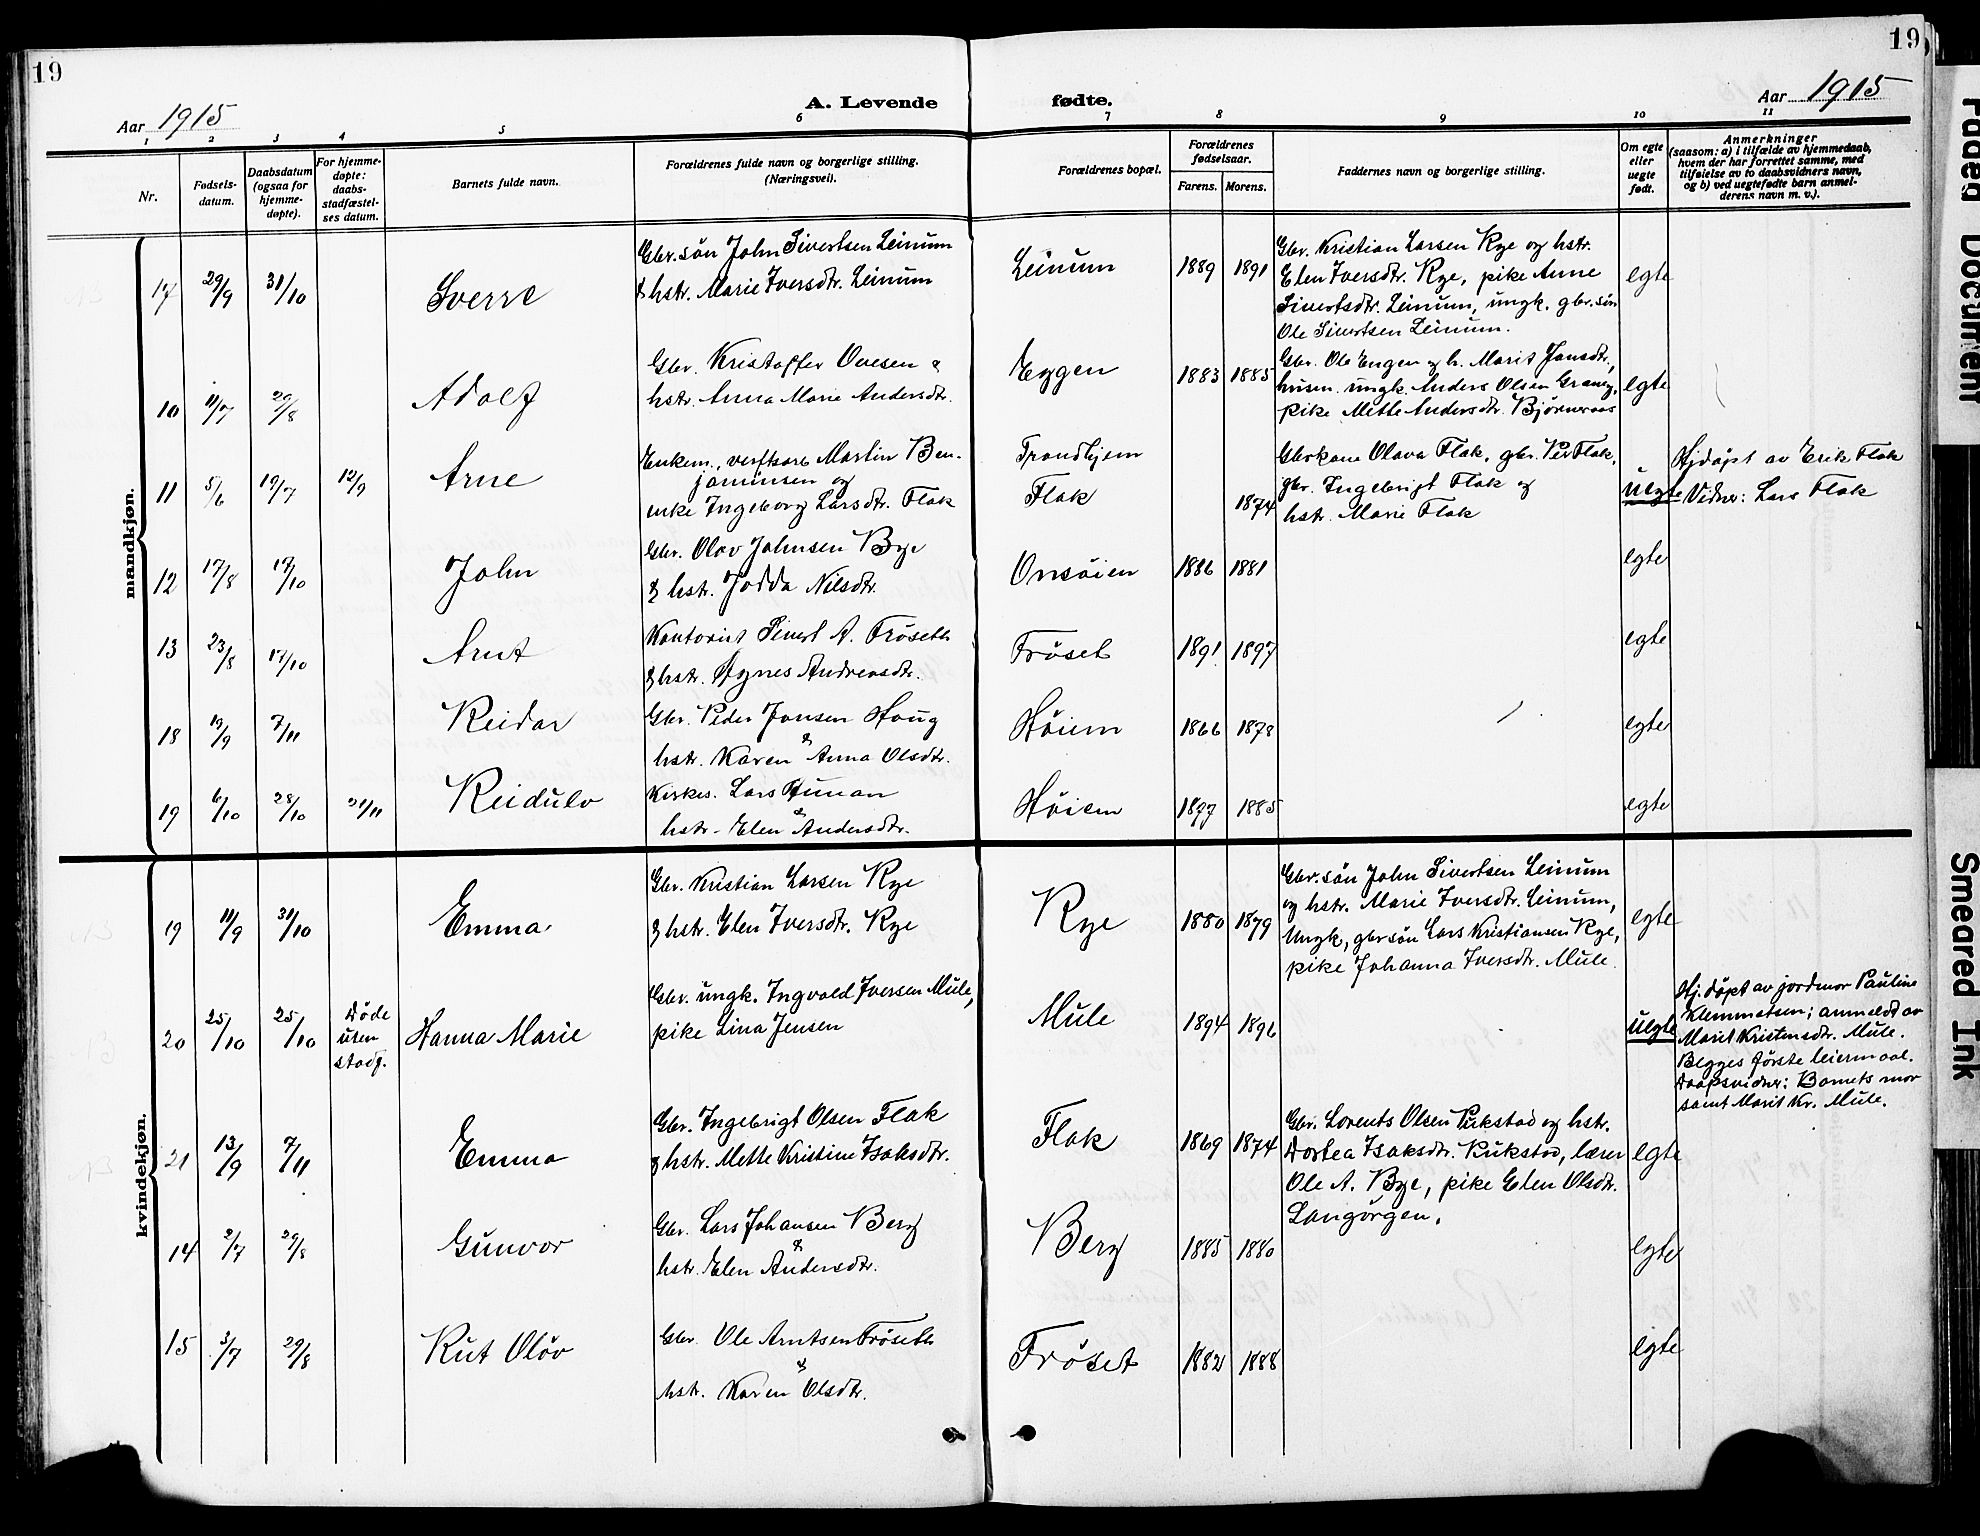 19
19
Aar 1915
A. Levende fødte.
Aar 1915
1 2 3 4 5 6 7 8 9 10 11
Nr.
Fødsels-
datum.
Daabsdatum
(ogsaa for
hjemme-
døpte).
For hjemme-
døpte:
daabs-
stadfæstel-
ses datum.
Barnets fulde navn.
Forældrenes fulde navn og borgerlige stilling.
(Næringsvei).
Forældrenes bopæl.
Forældrenes
fødselsaar.
Farens. Morens.
Faddernes navn og borgerlige stilling.
Om egte
eller
uegte
født.
Anmerkninger
(saasom: a) i tilfælde av hjemmedaab,
hvem der har forrettet samme, med
tilføielse av to daabsvidners navn,
og b) ved uegtefødte barn anmel-
derens navn m. v.).
mandkjøn.
17 29/9 31/10 Sverre
Gbr. søn John Sivertsen Leinum
& hstr. Marie Iversdtr. Leinum
Leinum 1889 1891
Gbr. Kristian Larsen Rye og hstr.
Elen Iversdtr. Rye, pike Anne
Sivertsdtr. Leinum, ungk. gbr. søn
Ole Sivertsen Leinum.
egte
10 11/7 29/8 Adolf
Gbr. Kristoffer Ovesen &
hstr. Anna Marie Andersdtr.
Eggen 1883 1885
Gbr. Ole Engen og h. Marit Jonsdtr,
husm. ungk. Anders Olsen
pike Mette Andersdtr. Bjørneraas
egte
11 5/6 19/7 12/9 Arne
Enkem., Martin Ben-
jaminsen og
enke Ingeborg Larsdtr. Flak
Trondhjem
Flak 1874
Gbrkone Olava Flak, gbr. Per Flak,
gbr. Ingebrigt Flak og
hstr. Marie Flak
Uegte
Hjdøpt av Erik Flak
Vidner: Lars Flak
12 17/8 17/10 John
Gbr. Olav Johnsen Bye
& hstr. Jodda Nilsdtr.
Onsøien 1886 1881
egte
13 23/8 17/10 Arnt
Kontorist Sivert A. Frøseth
& hstr. Agnes Andreasdtr.
Frøset 1891 1897
egte
18 19/9 7/11 Reidar
Gbr. Peder Jonsen Haug
&
hstr. Karen Anna Olsdtr.
Høiem 1866 1878
egte
19 6/10 28/10 21/11 Reidulv
Kirkes. Lars Hunan
&
hstr. Elen Andersdtr.
Høiem 1877 1885
egte
kvindekjøn.
19 11/9 31/10 Emma
Gbr. Kristian Larsen Rye
& hstr. Elen Iversdtr. Rye
Rye 1880 1879
Gbr. søn John Sivertsen Leinum
og hstr. Marie Iversdtr. Leinum,
Ungk, gbr søn Lars Kristiansen Rye,
pike Johanna Iversdtr. Mule.
egte
20 25/10 25/10 Døde
uten
stadf.
Hanna Marie
Gbr. ungk. Ingvald Iversen Mule,
pike Lina Jensen
Mule 1894 1896
Uegte
Hj. døpt av jordmor Pauline
Klemmetsen; anmeldt av
Marit Kristensdtr. Mule.
Begges første leiermaal.
Daapsvidner: Barnets mor
samt Marit Kr. Mule.
21 13/9 7/11 Emma
Gbr. Ingebrigt Olsen Flak
& hstr. Mette Kristine Isaksdtr.
Flak 1869 1874
Gbr. Lorents Olsen Rukstad og hstr.
Dortea Isaksdtr. Rukstad, lærer
Ole A. Bye, pike Elen Olsdtr.
Langørgen.
egte
14 2/7 29/8 Gunvor
Gbr. Lars Johansen Berg
&
hstr. Elen Andersdtr.
Berg 1885 1880
egte
15 3/7 29/8 Rut Oløv
Gbr. Ole Arntsen Frøseth
&
hstr. Karen Olsdtr.
Frøset 1882 1888
egte
Faded Document
Smeared Ink